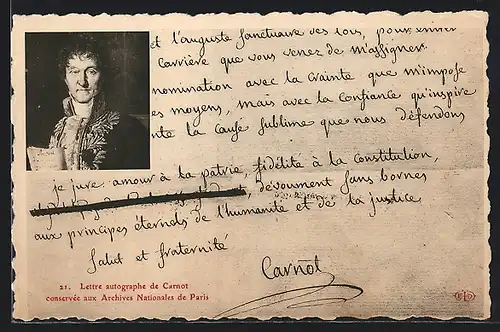 et l'auguste sanctuaire des lois, pour entrer
carrière que vous venez de m'assigner.
nomination avec la crainte que m'impose
es moyens, mais avec la confiance qu'inspire
nte la cause sublime que nous défendons
je jure amour à la patrie, fidélité à la constitution,
dévoument sans bornes
aux principes éternels de l'humanité et de la justice
Salut et fraternité
Carnot
21. Lettre autographe de Carnot
conservée aux Archives Nationales de Paris